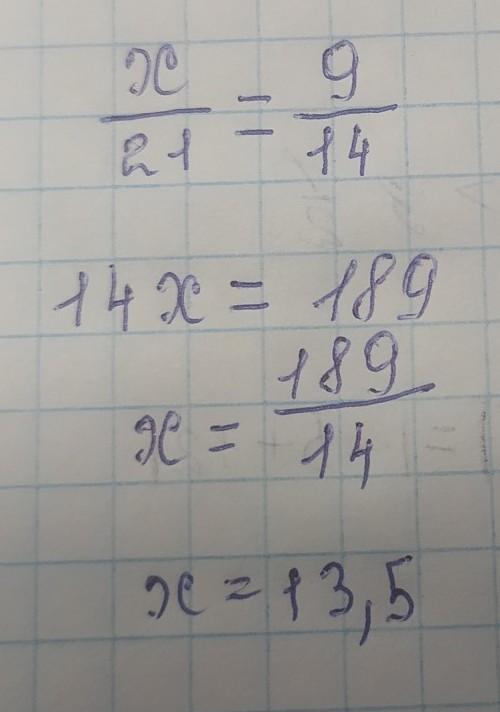 x/21 = 9/14
14x = 189
x = 189/14
x = 13,5